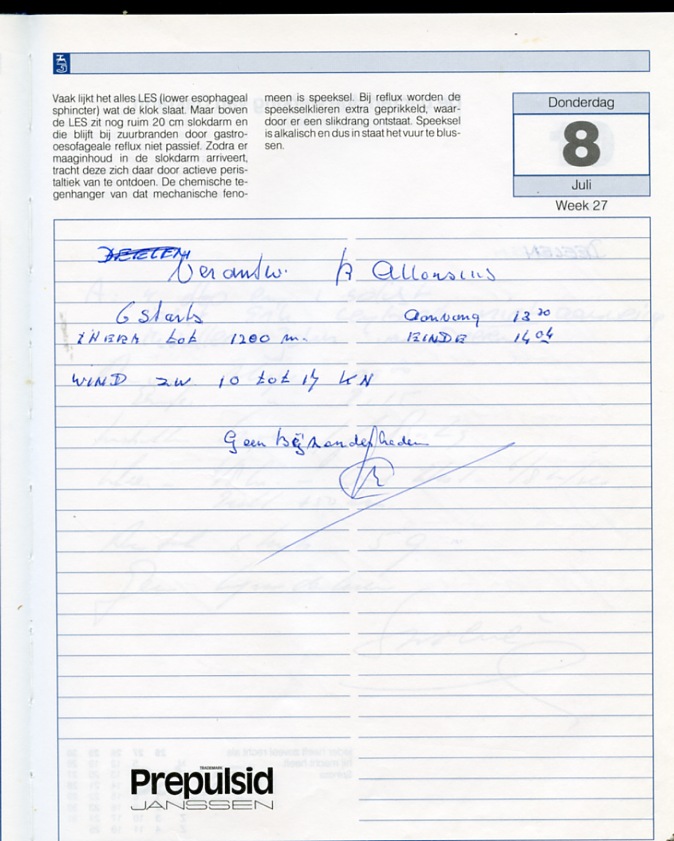 Vaak lijkt het alles LES (lower esophageal
sphincter) wat de klok slaat. Maar boven
de LES zit nog ruim 20 cm slokdarm en
die blijft bij zuurbranden door gastro-
oesofageale reflux niet passief. Zodra er
maaginhoud in de slokdarm arriveert,
tracht deze zich daar door actieve peris-
taltiek van te ontdoen. De chemische te-
genhanger van dat mechanische feno-
meen is speeksel. Bij reflux worden de
speekselklieren extra geprikkeld, waar-
door er een slikdrang ontstaat. Speeksel
is alkalisch en dus in staat het vuur te blus-
sen.
Donderdag
8
Juli
Week 27
DEELEN
Verantw. B Allonsius
6 starts Aanvang 13 30
THERM tot 1200 m. EINDE 14 04
WIND ZW 10 tot 14 KN
Geen bijzonderheden
TRADEMARK
Prepulsid
JANSSEN